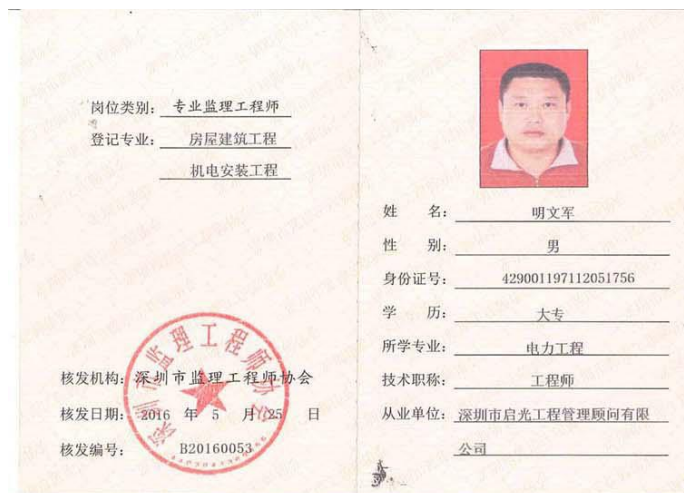 岗位类别：专业监理工程师
登记专业：房屋建筑工程
机电安装工程
核发机构：深圳市监理工程师协会
核发日期：2016 年 5 月 25 日
核发编号：B20160053
姓 名：明文军
性 别：男
身份证号：429001197112051756
学 历：大专
所学专业：电力工程
技术职称：工程师
从业单位：深圳市启光工程管理顾问有限
公司
深圳市监理工程师协会